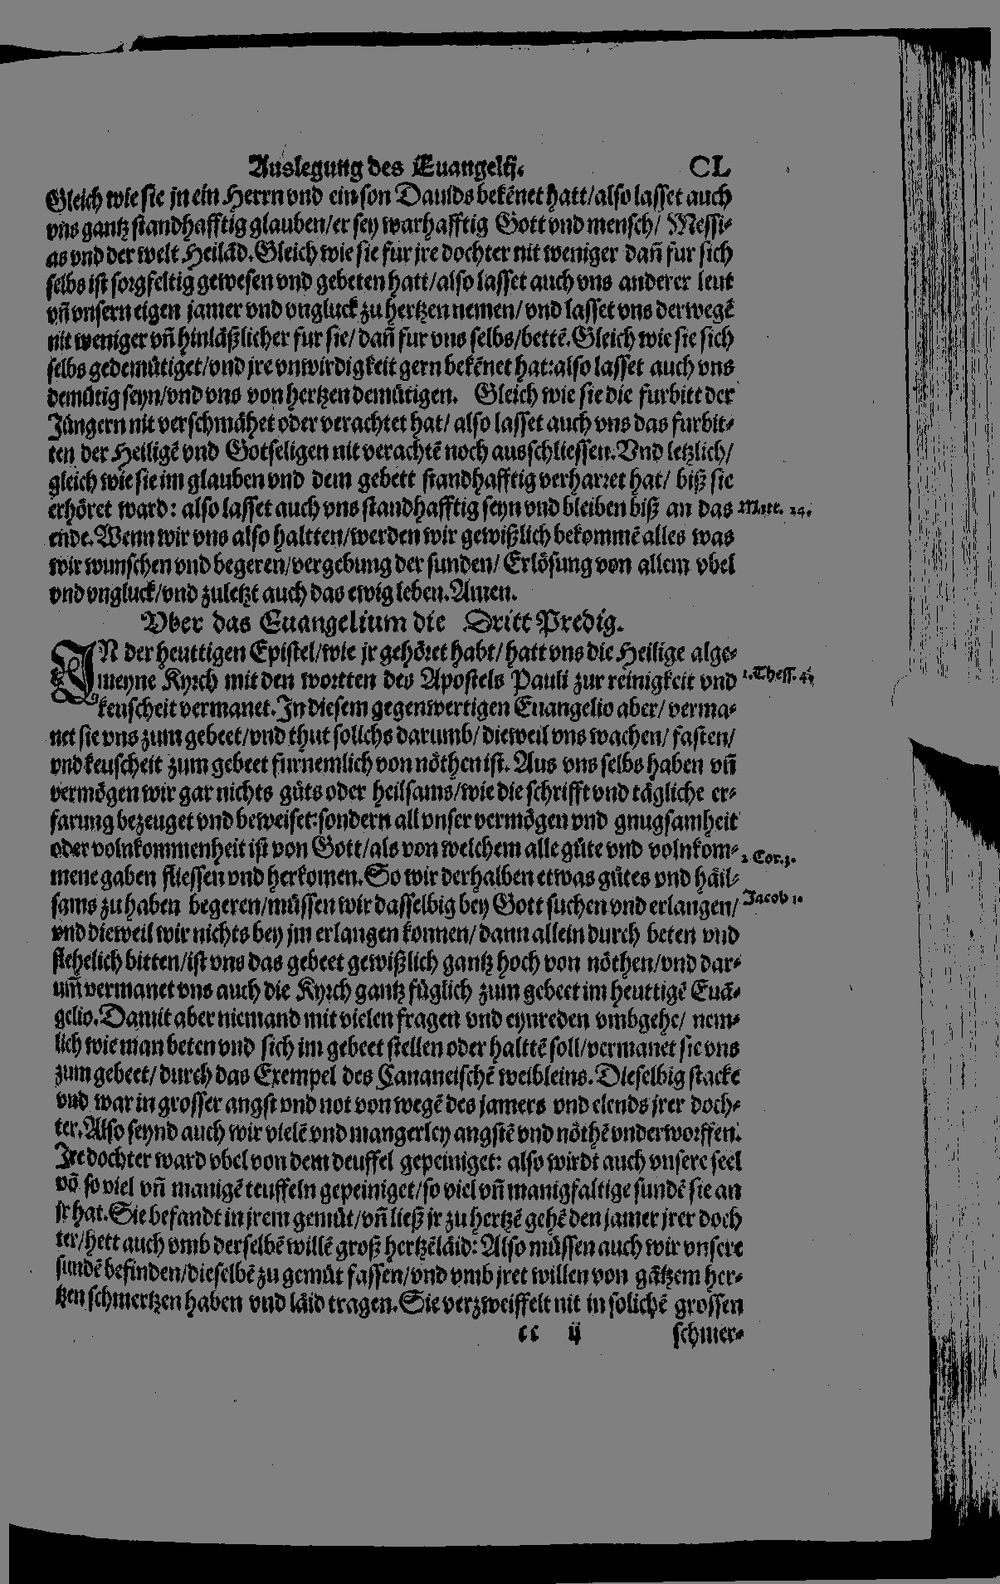 Auslegung des Euangelij. CL
Gleich wie sie jn ein Herrn vnd ein son Dauids bekēnet hatt/also lasset auch
vns gantz standhafftig glauben/er sey warhafftig Gott vnd mensch/ Messi-
as vnd der welt Heilād. Gleich wie sie fur jre dochter nit weniger dañ fur sich
selbs ist sorgfeltig gewesen vnd gebeten hatt/also lasset auch vns anderer leut
vñ vnsern eigen jamer vnd vngluck zu hertzen nemen/ vnd lasset vns derwegē
nit weniger vñ hinläßlicher fur sie/ dañ fur vns selbs/bettē. Gleich wie sie sich
selbs gedemütiget/vnd jre vnwirdigkeit gern bekēnet hat:also lasset auch vns
demütig seyn/vnd vns von hertzen demütigen. Gleich wie sie die furbitt der
Jüngern nit verschmähet oder verachtet hat/ also lasset auch vns das furbit-
ten der Heiligē vnd Gotseligen nit verachtē noch ausschliessen. Vnd letzlich/
gleich wie sie im glauben vnd dem gebett standhafftig verharret hat/ biß sie
erhöret ward: also lasset auch vns standhafftig seyn vnd bleiben biß an das Matt. 24.
ende. Wenn wir vns also haltten/werden wir gewißlich bekommē alles was
wir wunschen vnd begeren/vergebung der sunden/ Erlösung von allem vbel
vnd vngluck/vnd zuletzt auch das ewig leben. Amen.
Vber das Euangelium die Dritt Predig.
IN der heuttigen Epistel/wie jr gehöret habt/ hatt vns die Heilige alge-
meyne Kyrch mit den wortten des Apostels Pauli zur reinigkeit vnd 1. Thess. 4.
keuscheit vermanet. In diesem gegenwertigen Euangelio aber/ verma-
net sie vns zum gebeet/vnd thut sollchs darumb/ dieweil vns wachen/ fasten/
vnd keuscheit zum gebeet furnemlich von nöthen ist. Aus vns selbs haben vñ
vermögen wir gar nichts güts oder heilsams/wie die schrifft vnd tägliche er-
farung bezeuget vnd beweiset:sondern all vnser vermögen vnd gnugsamheit
oder volnkommenheit ist von Gott/als von welchem alle güte vnd volnkom- 2 Cor. 3.
mene gaben fliessen vnd herkomen. So wir derhalben etwas gütes vnd häil-
sams zu haben begeren/müssen wir dasselbig bey Gott suchen vnd erlangen/ Jacob 1.
vnd dieweil wir nichts bey jm erlangen konnen/ dann allein durch beten vnd
flehelich bitten/ist vns das gebeet gewißlich gantz hoch von nöthen/vnd dar-
um̄ vermanet vns auch die Kyrch gantz füglich zum gebeet im heuttigē Euā-
gelio. Damit aber niemand mit vielen fragen vnd eynreden vmbgehe/ nem-
lich wie man beten vnd sich im gebeet stellen oder halttē soll/vermanet sie vns
zum gebeet/ durch das Exempel des Cananeischē weibleins. Dieselbig stacke
vnd war in grosser angst vnd not von wegē des jamers vnd elends jrer doch-
ter. Also seynd auch wir vielē vnd mangerley angstē vnd nöthē vnderworffen.
Jre dochter ward vbel von dem deuffel gepeiniget: also wirdt auch vnsere seel
vō so viel vñ manigē teuffeln gepeiniget/so viel vñ manigfaltige sundē sie an
jr hat. Sie befandt in jrem gemüt/vñ ließ jr zu hertzē gehē den jamer jrer doch
ter/hett auch vmb derselbē willē groß hertzēläid: Also müssen auch wir vnsere
sundē befinden/dieselbē zu gemüt fassen/vnd vmb jret willen von gātzem her-
tzen schmertzen haben vnd läid tragen. Sie verzweiffelt nit in solichē grossen
cc ij schmer-